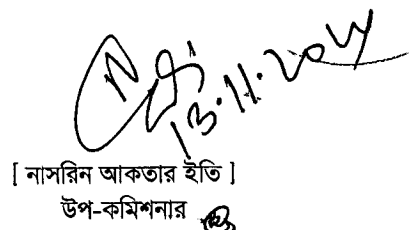 13.11.2024
[ নাসরিন আকতার ইতি ]
উপ-কমিশনার